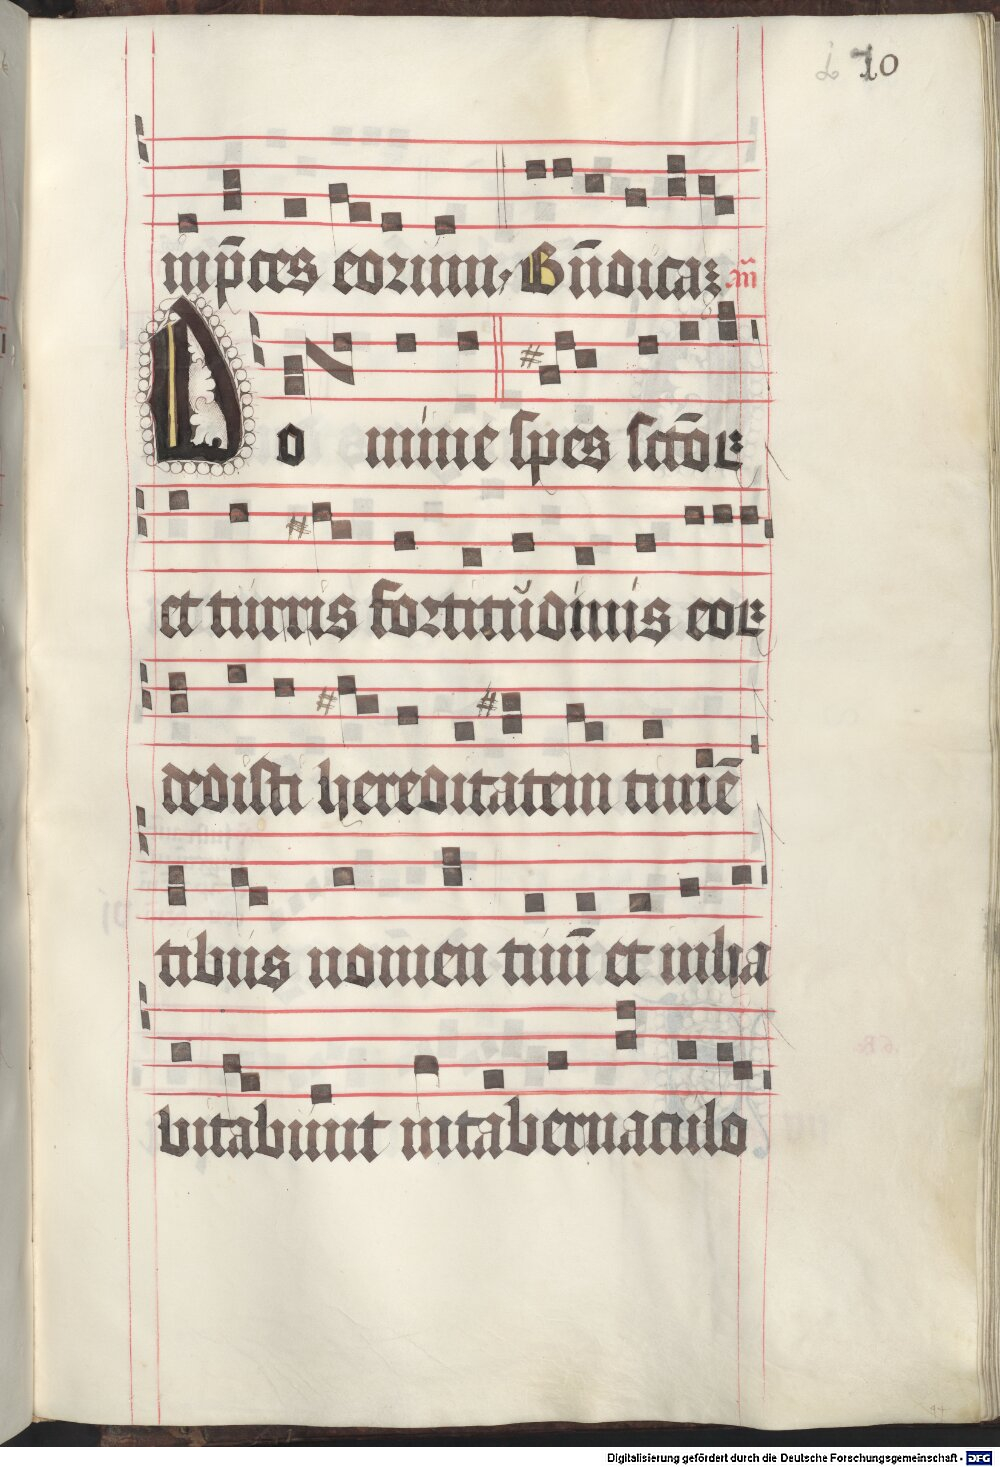 10
inp̄ces eorum, Bn̄dicaꝫ añ
Do mine spes sctōꝝ
et turris fortitudinis eoꝝ
dedisti hereditatem timē
tibus nomen tuū et inha
bitabunt in tabernaculo
Digitalisierung gefördert durch die Deutsche Forschungsgemeinschaft - DFG